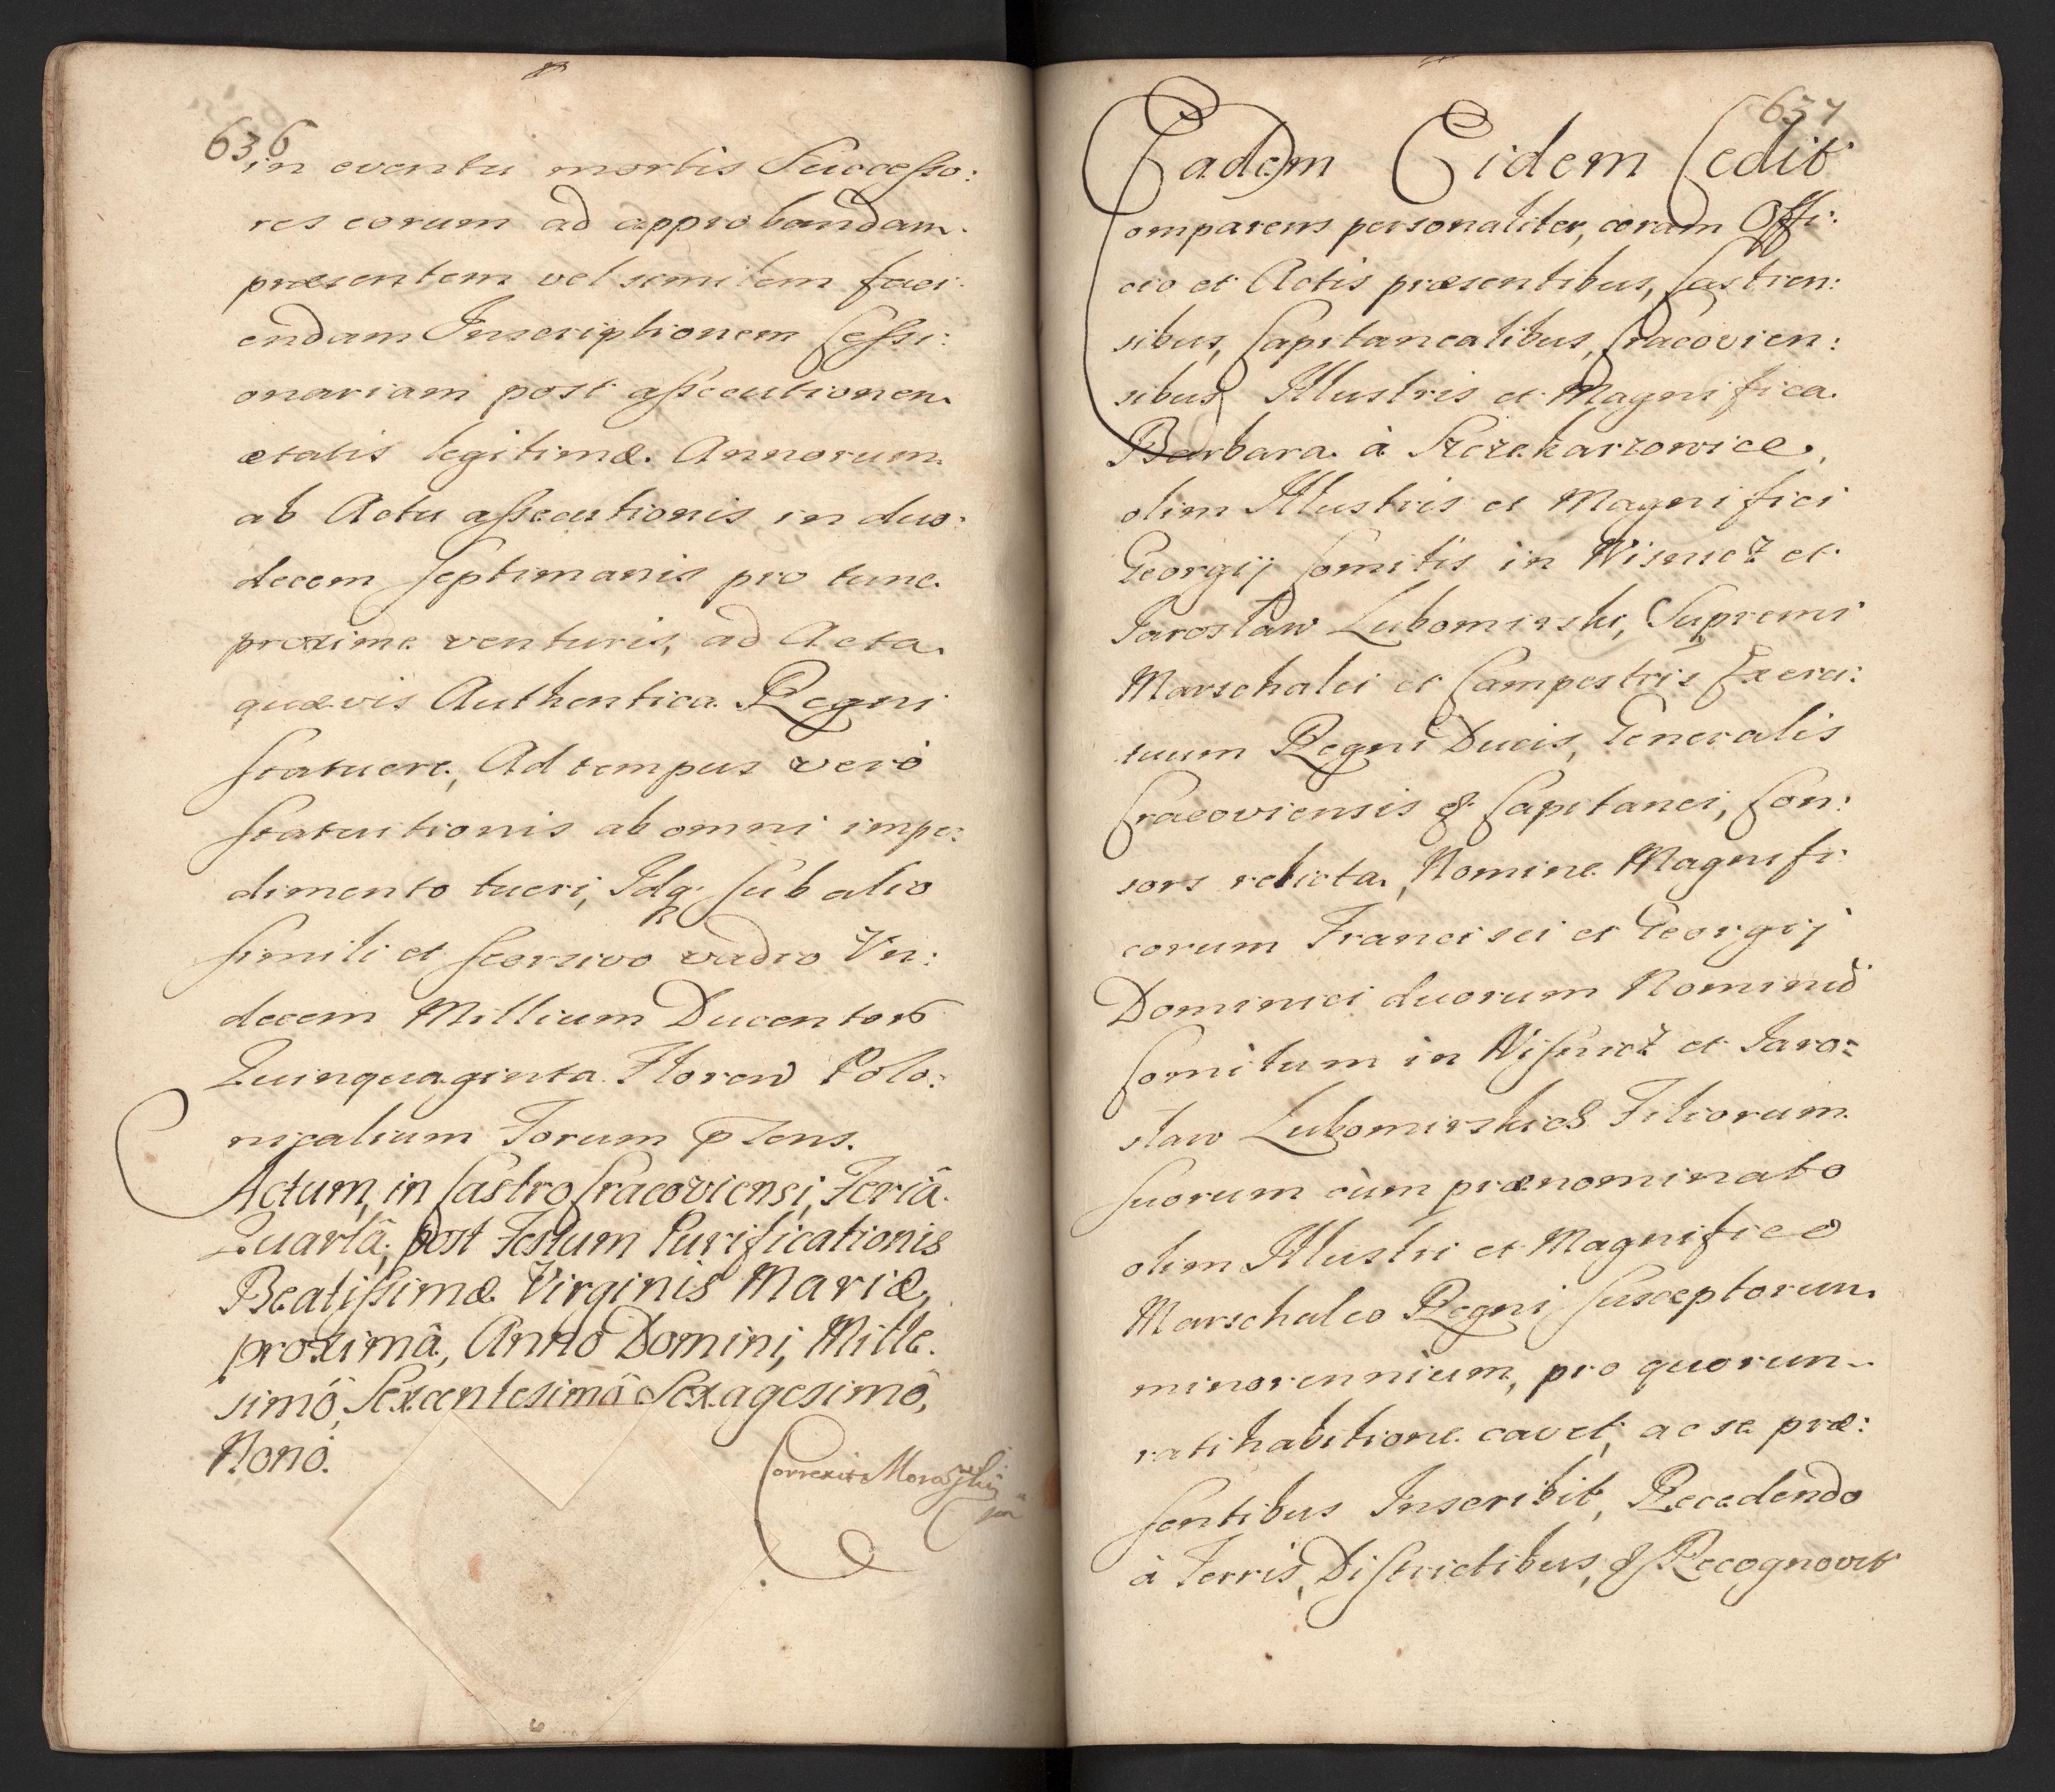 636
in eventu mortis Successo:
res eorum ad approbandam
præsentem vel similem faci:
endam Inscriptionem Cessi:
onariam post assecutionem
ætatis legitimæ Annorum
ab Actu assecutionis in duo:
decem septimanis pro tunc
proxime venturis, ad Acta
quævis Authentica Regni
statuere, Ad tempus verò
statuitionis ab omni impe:
dimento tueri, Idq sub alio
simili et seorsivo vadio Vn:
decem Millium Ducentor
Quinquaginta Floren Polo:
nicalium Forum
Actum, in Castro Cracoviensi, Feriâ
Quartâ, post Festum Purificationis
Beatissimæ Virginis Mariæ,
proximâ, Anno Domini, Mille.
simô, Sexcentesimô Sexagesimô,
Nonô.
Correxit
637
Eadem Eidem Cedit
Comparens personaliter, coram Offi:
cio et Actis præsentibus, Castren:
sibus, Capitanealibus, Cracovien:
sibus Illustris et Magnifica
Barbara à Szczekarzowice,
olim Illustris et Magnifici
Georgij Comitis in Wisnicz et
Jarosław Lubomirski, Supremi
Marschalci et Campestris Exerci:
tuum Regni Ducis, Generalis
Cracoviensis & Capitanei, Con:
sors relicta, Nomine Magnifi:
corum Francisci et Georgij
Dominici duorum Nominũ
Comitum in Wisnicz et Jaro=
sław Lubomirskich Filiorum
suorum cùm prænominato
olim Illustri et Magnifico
Marschalco Regni susceptorum
minorennium, pro quorum
ratihabitione cavet, ac se præ:
sentibus Inscribit, Recedendo
à Terris, Districtibus, & Recognovit